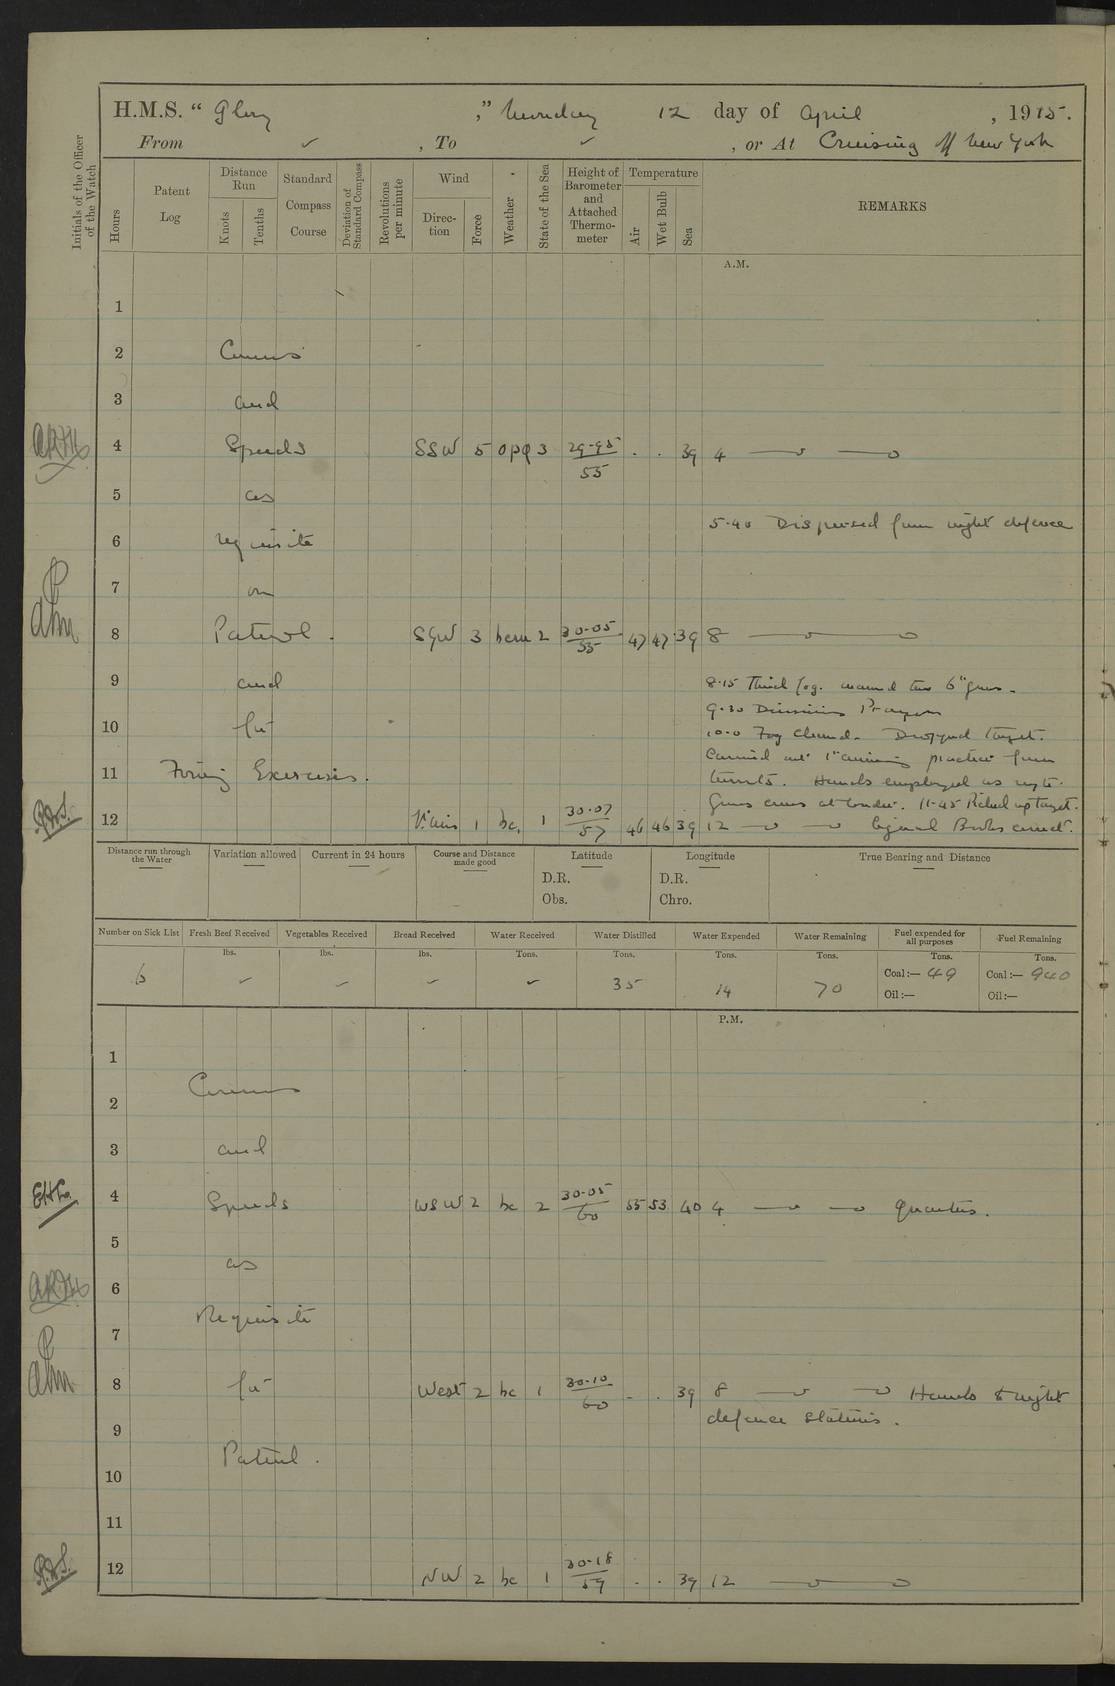 H.M.S. “ Glory ,” Monday 12 day of April , 1915.
From ✓ , To ✓ , or At Cruising off New York
Initials of the Officer of the Watch
Hours
Patent Log
Distance Run
Knots
Tenths
Standard Compass Course
Deviation of Standard Compass
Revolutions per minute
Wind
Direction
Force
Weather
State of the Sea
Height of Barometer and Attached Thermometer
Temperature
Air
Wet Bulb
Sea
REMARKS
A.M.
1
2 Courses
3 and
4 Speeds SSW 5 opq 3 29.95 55 . . 39 4
5 as
5.40 Dispersed from night defence
6 requisite
7 on
8 Patrol . 3 2 30.05 55 47 47 39 8
9 and 8.15 Thick fog. manned two 6" guns.
9.30 Divisions Prayers
10 for 10.0 Fog cleared. Dropped target.
Carried out 1" aiming practice from
11 Firing Exercises. turrets. Hands employed as reqte.
Guns crews at loader. 11.45 Picked up target.
12 V'airs 1 bc. 1 30.07 57 46 46 39 12 Signal Books correct.
Distance run through the Water
Variation allowed
Current in 24 hours
Course and Distance made good
Latitude
D.R.
Obs.
Longitude
D.R.
Chro.
True Bearing and Distance
Number on Sick List
Fresh Beef Received
Vegetables Received
Bread Received
Water Received
Water Distilled
Water Expended
Water Remaining
Fuel expended for all purposes
Fuel Remaining
lbs. lbs. lbs. Tons. Tons. Tons. Tons. Tons. Tons.
6 ✓ ✓ ✓ ✓ 35 14 70 Coal :— 49 Coal :— 940
Oil :— Oil :—
P.M.
1
Courses
2
3 and
4 Speeds WSW 2 bc 2 30.05 60 55 53 40 4 Quarters.
5
as
6
Requisite
7
8 for West 2 bc 1 30.10 60 . . 39 8 Hands to night
defence stations .
9
Patrol .
10
11
12 NW 2 bc 1 30.18 59 . . 39 12